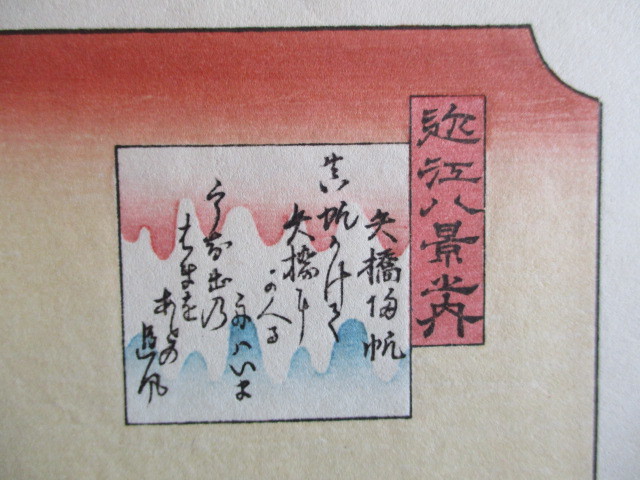 近江八景之内
矢橋帰帆
真帆かけて
矢橋に
かへる
舟ハいま
うち出の
はまを
あとの
追風